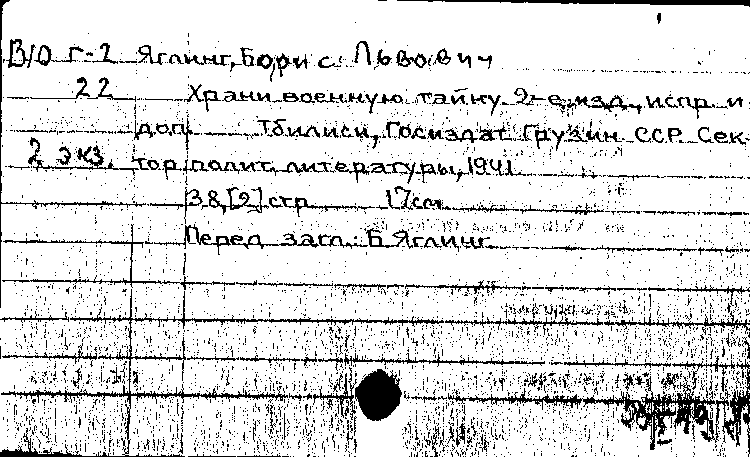 В/О г-2 Яглинг, Борис Львович
22 Храни военную тайну. 2-е изд., испр. и
доп. Тбилиси, Госиздат Грузин. ССР. Сек-
2 экз. тор полит. литературы, 1941.
38, [2] стр. 17 см.
Перед загл.: Б. Яглинг.